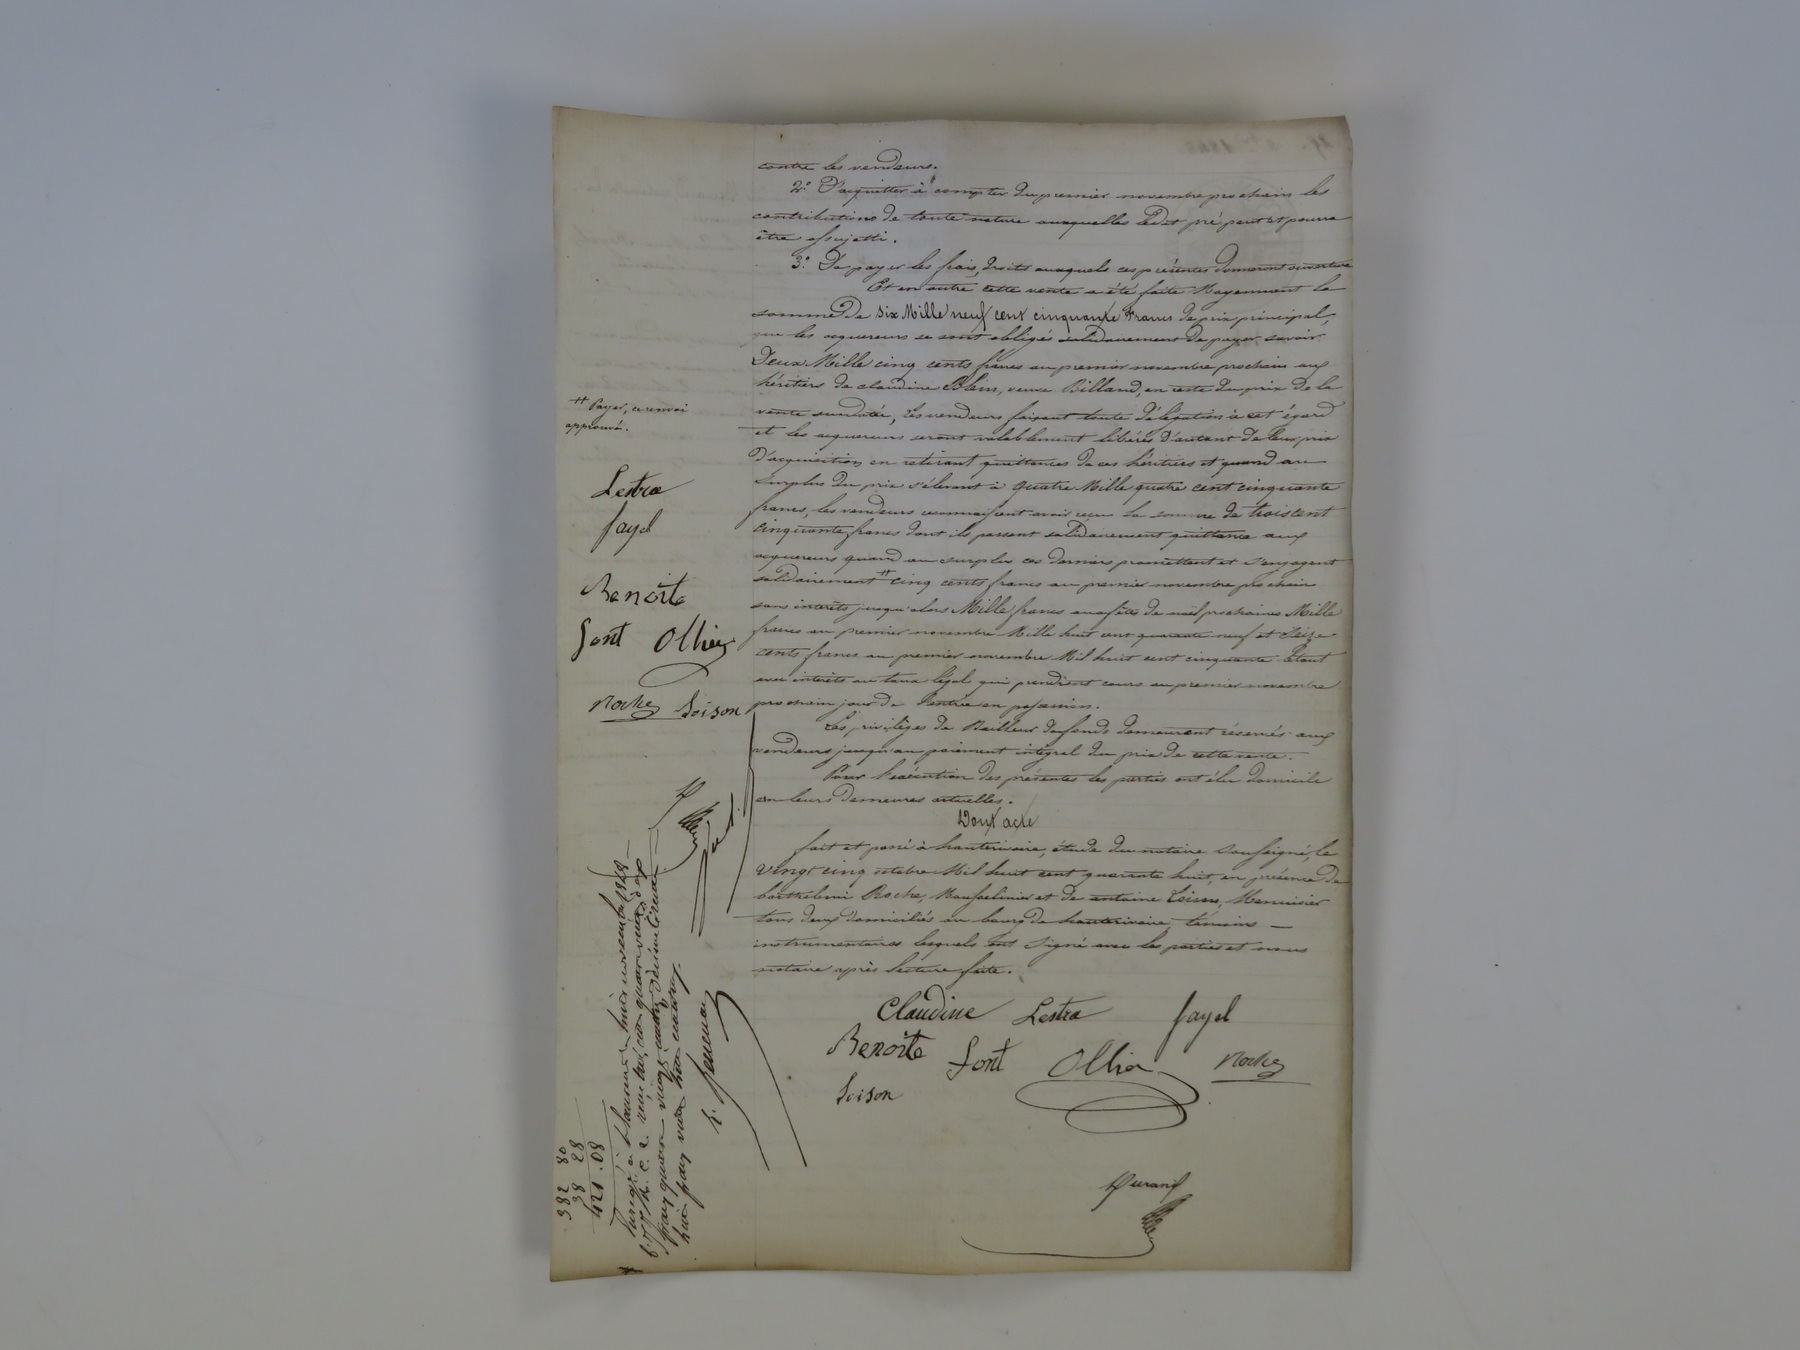 contre les vendeurs.
2° D'acquitter à compter du premier novembre prochain les
contributions de toute nature auxquelles ledit pré peut et pourra
être assujetti.
3° De payer les frais, droits auxquels ces présentes donneront ouverture
Et en outre cette vente a été faite Moyennant la
somme de six Mille neuf cent cinquante Francs de prix principal,
que les acquereurs se sont obligés solidairement de payer savoir:
Deux Mille cinq cents francs au premier novembre prochain aux
héritiers de claudine Blein, veuve Billand, en reste du prix de la
vente susdatée, les vendeurs faisant toute délégation à cet égard
et les acquereurs seront valablement libérés d'autant de leur prix
d'acquisition en retirant quittances de ces héritiers et quand au
surplus du prix s'élevant à quatre Mille quatre cent cinquante
francs, les vendeurs reconnaissent avoir reçu la somme de trois cent
cinquante francs dont ils passent solidairement quittance aux
acquereurs quand au surplus ces derniers promettent et s'engagent
solidairement # cinq cents francs au premier novembre prochain
sans intérêts jusqu'alors Mille francs aux fêtes de noël prochaines Mille
francs au premier novembre Mille huit cent quarante neuf et Seize
cents francs au premier novembre Mil huit cent cinquante Le tout
avec intérêts au taux légal qui prendront cours au premier novembre
prochain jour de l'entrée en possession.
Les privilèges de Bailleur de fonds demeurent réservés aux
vendeurs jusqu'au paiement intégral du prix de cette vente.
Pour l'exécution des présentes les parties ont élu domicile
en leurs demeures actuelles.
Dont acte
fait et passé à hauterivoire, étude du notaire soussigné, le
vingt cinq octobre Mil huit cent quarante huit, en présence de
barthelemi Roche, Mousselinier et de antoine Loison, Menuisier
tous deux domiciliés au bourg de hauterivoire, témoins
instrumentaires lesquels ont signé avec les parties et nous
notaire après lecture faite.
Claudine Lestra fayel
Benoîte font Ollier Roche
Loison
Durand
# Payer, ce renvoi
approuvé.
Lestra
fayel
Benoîte
font Ollier
Roche Loison
382 80
38 28
421.08